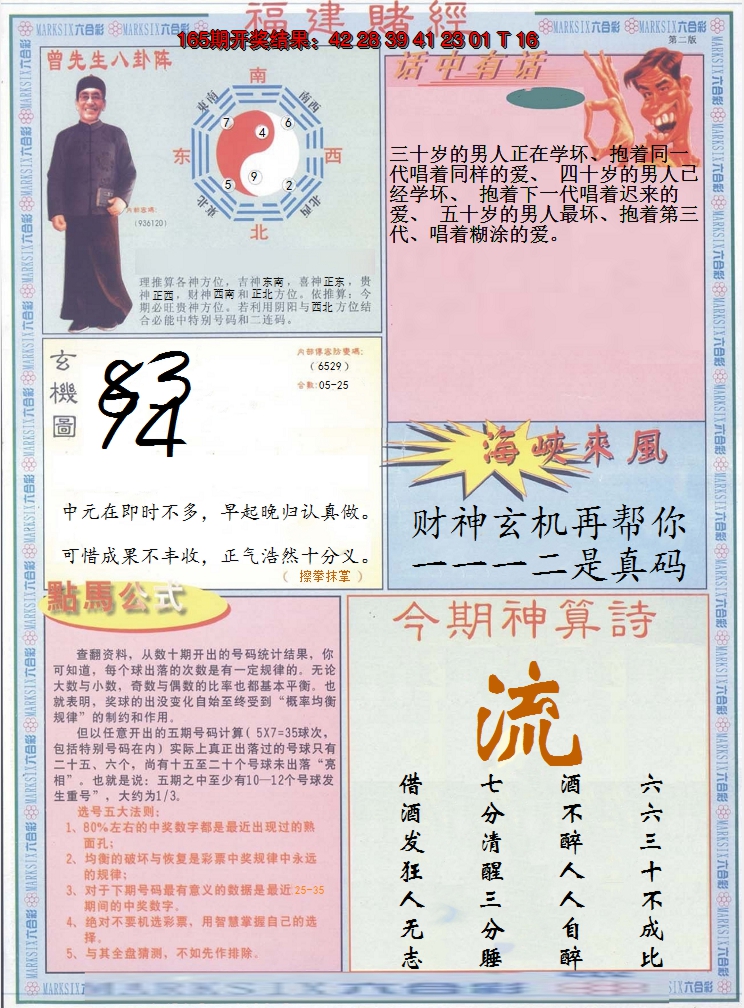 福建賭經
165期开奖结果：42 28 39 41 23 01 T 16
MARKSIX六合彩 MARKSIX六合彩 MARKSIX六合彩 MARKSIX六合彩
第二版
曾先生八卦阵
南
东南
南西
7
4
6
东
西
5
9
2
東北
北西
北
内部密碼:
(936120)
理推算各神方位，吉神东南，喜神正东，贵
神正西，财神西南和正北方位。依推算：今
期必旺贵神方位。若利用阴阳与西北方位结
合必能中特别号码和二连码。
话中有话
三十岁的男人正在学坏、抱着同一
代唱着同样的爱、 四十岁的男人已
经学坏、 抱着下一代唱着迟来的
爱、 五十岁的男人最坏、抱着第三
代、唱着糊涂的爱。
玄機圖
内部傳密防密碼:
(6529)
合数:05-25
中元在即时不多，早起晚归认真做。
可惜成果不丰收，正气浩然十分义。
（ 擦拳抹掌 ）
海峽來風
财神玄机再帮你
一一一二是真码
點馬公式
查翻资料，从数十期开出的号码统计结果，你
可知道，每个球出落的次数是有一定规律的。无论
大数与小数，奇数与偶数的比率也都基本平衡。也
就表明，奖球的出没变化自始至终受到“概率均衡
规律”的制约和作用。
但以任意开出的五期号码计算( 5X7=35球次，
包括特别号码在内）实际上真正出落过的号球只有
二十五、六个，尚有十五至二十个号球未出落“亮
相”。也就是说：五期之中至少有10—12个号球发
生重号”，大约为1/3。
选号五大法则：
1、80%左右的中奖数字都是最近出现过的熟
面孔；
2、均衡的破坏与恢复是彩票中奖规律中永远
的规律；
3、对于下期号码最有意义的数据是最近25-35
期间的中奖数字。
4、绝对不要机选彩票，用智慧掌握自己的选
择。
5、与其全盘猜测，不如先作排除.
今期神算詩
流
六六三十不成比
酒不醉人人自醉
七分清醒三分睡
借酒发狂人无志
MARKSIX六合彩